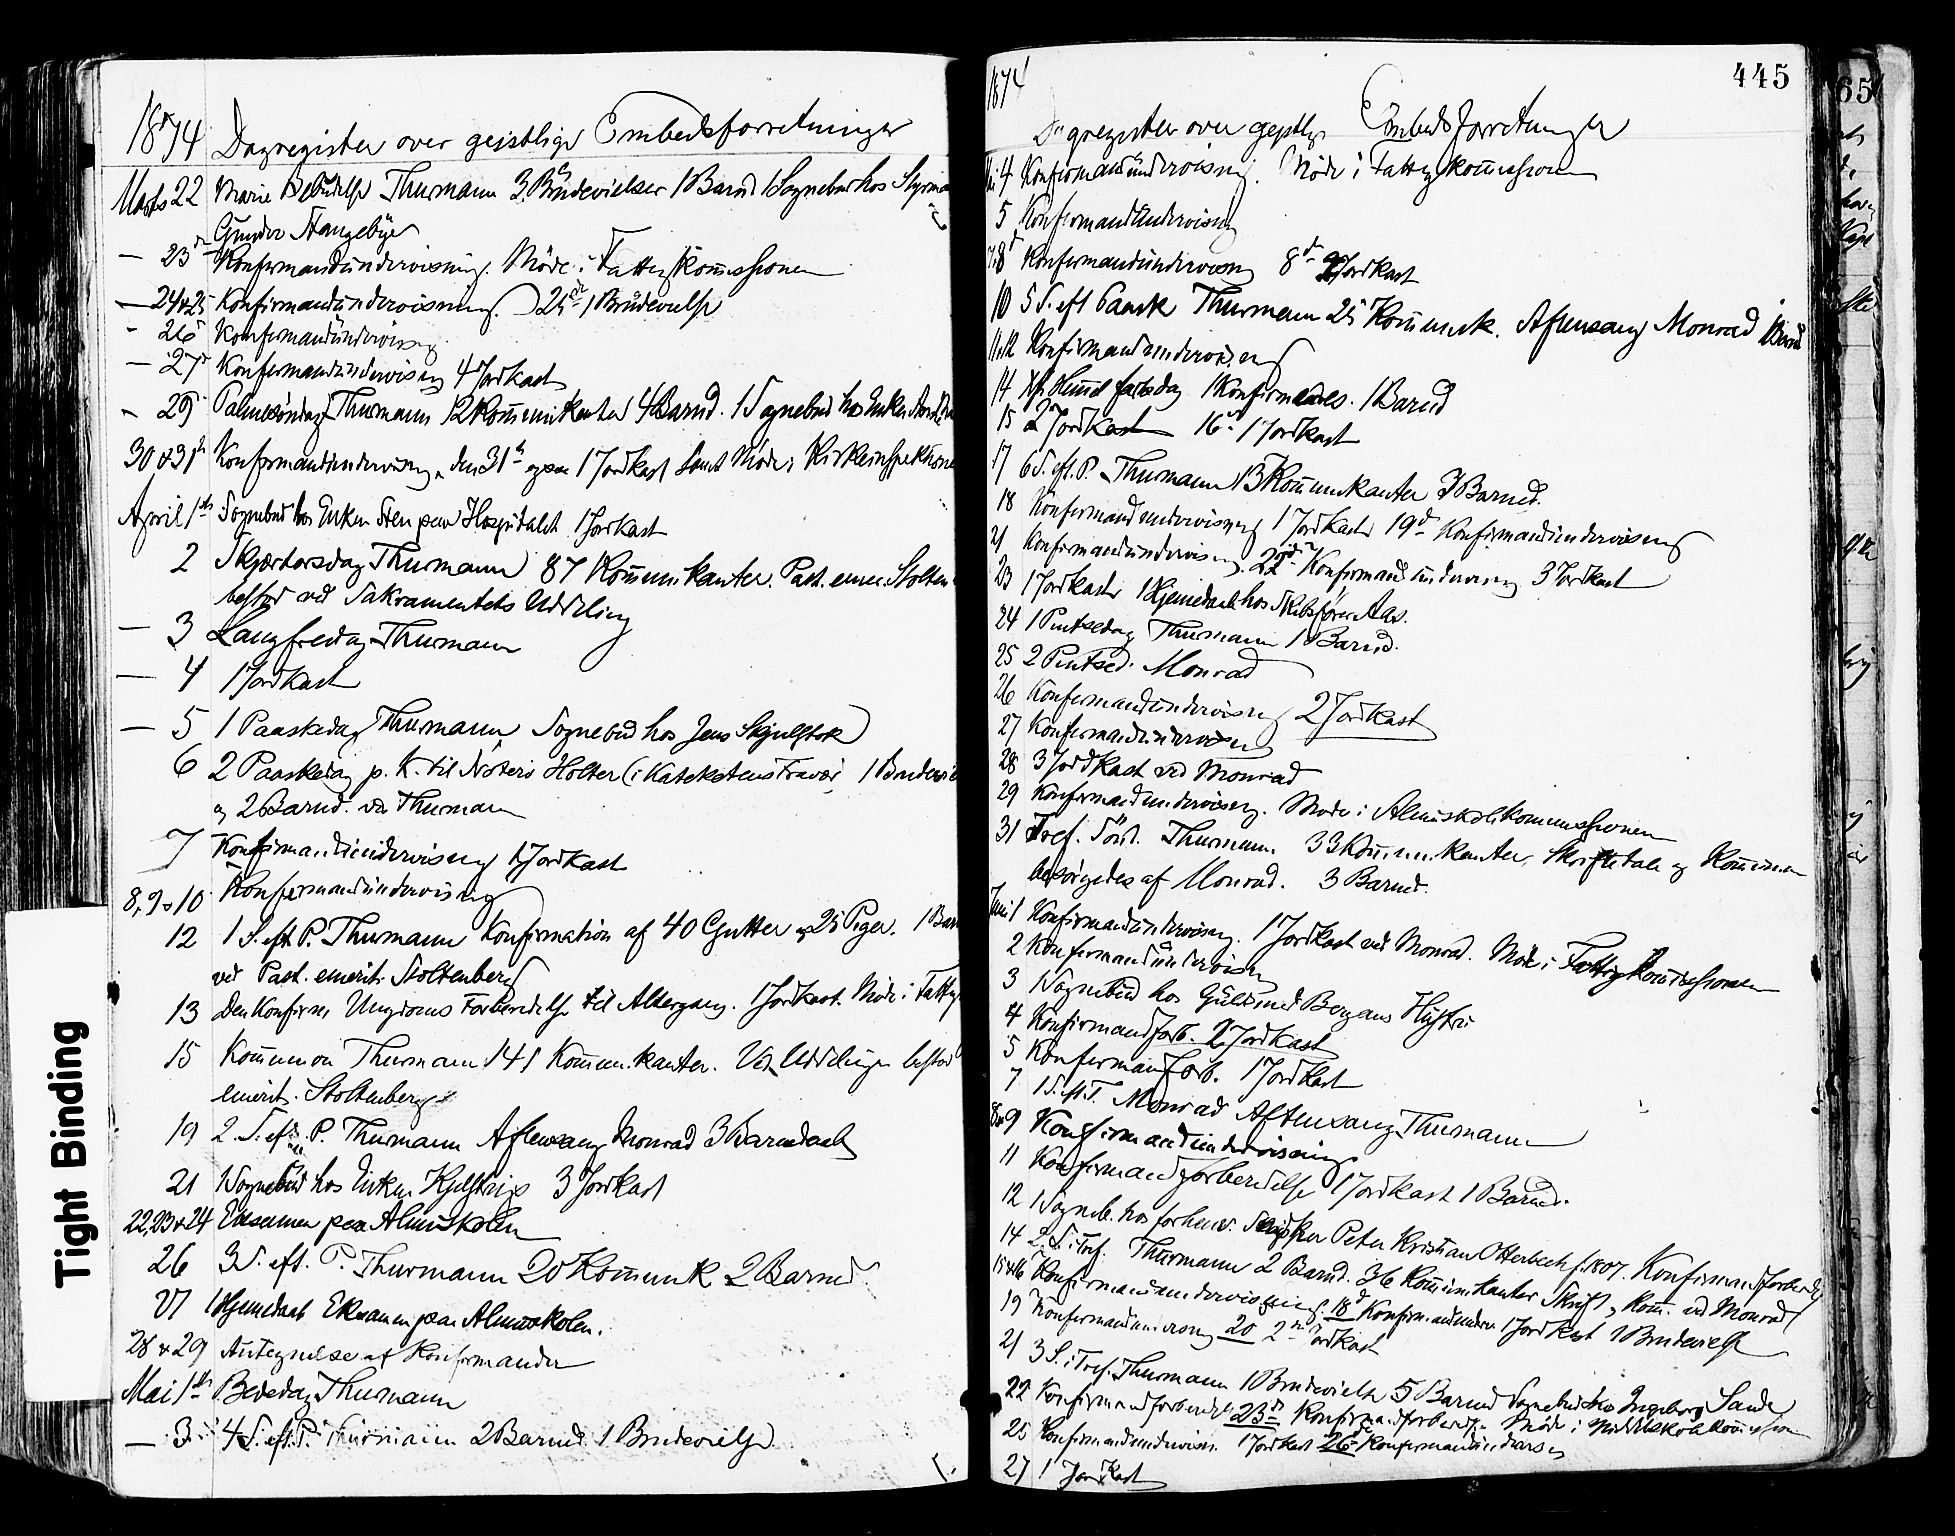 1874 Dagregister over geistlige Embedsforretninger
Marts 22 Marie Bebudelse Thurmann 3 Brudevielser 1 Barnd 1 Sognebud hos
Gunder Stangebye
— 23 Konfirmandundervisning. Möde i Fattigkommissionen
— 24 & 25 Konfirmandundervisning. 25 1 Brudevielse
- 26 Konfirmandundervisning
— 27 Konfirmandundervisning 4 Jordkast
- 29 Palmesöndag Thurmann 12 Kommunikanter 4 Barnd. 1 Sognebud hos Enken
30 & 31 Konfirmandundervisning, den 31te ogsaa 1 Jordkast samt Möde i Kirkeinspektionen
April 1ste Sognebud hos Enken Sten paa Hospitalet 1 Jordkast
2 Skjærtorsdag Thurmann 87 Kommunikanter. Past. emer. Stolten
bistod ved Sakramentets Uddeling
— 3 Langfredag Thurmann
— 4 1 Jordkast
— 5 1 Paaskedag Thurmann Sognebud hos Jens
6 2 Paaskedag p. K. til Nöterö Holter (i Katekstens Fravær 1 Brudevie
og 2 Barnd. ved Thurmann
7 Konfirmandundervisning 1 Jordkast
8, 9 & 10 Konfirmandundervisning
12 1 S. eft P. Thurmann Konfirmation af 40 Gutter og 25 Piger. 1 Bar
ved Past. emerit. Stoltenberg
13 Den Konfirm. Ungdoms Forberedelse til Altergang. 1 Jordkast. Möde i Fattig
15 Kommunion Thurmann 141 Kommunikanter. Ved Uddelingen bistod
emerit. Stoltenberg
19 2. S. eft. P. Thurmann Aftensang Monrad 3 Barnedaab
21 1 Sognebud hos Enken 3 Jordkast
22, 23 & 24 Eksamen paa Almuskolen
26 3 S. eft. P. Thurmann 20 Kommunk 2 Barnd.
27 1 Hjemedaab Eksamen paa Almuskolen.
28 & 29 Antegnelse af Konfirmander
Mai 1ste Bededag Thurmann
— 3 4 S. eft. P. Thurmann 2 Barnd. 1 Brudevielse
Tight Binding
1874 445
Dagregister over geistlige Embedsforretninger
4 Konfirmandundervisning. Möde i Fattigkommissionen
5 Konfirmandundervisning
7, 8 Konfirmandundervisning 8 Jordkast
10 5 S. eft Paask Thurmann 25 Kommunk. Aftensang Monrad 1 Barnd
11, 12 Konfirmandundervisning
14 Kr. Himmelfartsdag 1 Konfirmeres. 1 Barnd
15 2 Jordkast 16 1 Jordkast
17 6 S. eft. P. Thurmann 13 Kommunikanter 3 Barned.
18 Konfirmandundervisning 1 Jordkast 19 Konfirmandundervisning
21 Konfirmandundervisning. 22 Konfirmandundervisning 3 Jordkast
23 1 Jordkast 1 Hjemedaab hos Skibsförer Aas.
24 1 Pintsedag Thurmann 1 Barnd.
25 2 Pintsed. Monrad
26 Konfirmandundervisning 2 Jordkast
27 Konfirmandundervisning
28 3 Jordkast ved Monrad
29 Konfirmandundervisning. Möde i Almuskolekommissionen
31 Tref. Sönd. Thurmann. 33 Kommunikanter, Skriftetale og Kommunion
besörgedes af Monrad. 3 Barnd.
Juni 1 Konfirmandundervisning. 1 Jordkast ved Monrad. Möde i Fattigkommissionen
2 Konfirmandundervisn
3 1 Sognebud hos Guldsmed Hustru
4 Konfirmandforb. 2 Jordkast
5 Konfirmandforb. 1 Jordkast
7 1 S. eft. T. Monrad Aftensang Thurmann
8 & 9 Konfirmandundervisning
11 Konfirmandforberedelse 1 Jordkast 1 Barnd.
12 1 Sogneb. hos forhenv. Peter Kristian Otterbech f. 1807. Konfirmandforbered
14 2 S. i Tref. Thurmann 2 Barnd. 36 Kommunikanter Skrift. og Komm. ved Monrad
15 & 16 Konfirmandundervisning. 18 Konfirmandunderv. 1 Jordkast 1 Brudevielse
19 Konfirmandundervisning 20 2 Jordkast
21 3 S. i Tref. Thurmann 1 Brudevielse 5 Barnd Sognebud hos Ingeborg Sande
22 Konfirmandforberedelse 23 Konfirmandforberedse Möde i Middelskolekommission
25 Konfirmandundervisn. 1 Jordkast 26 Konfirmandundervisn
27 1 Jordkast
65